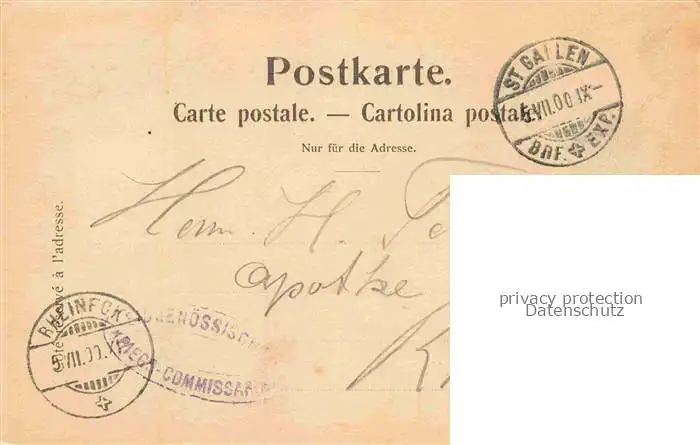 Postkarte.
Carte postale. — Cartolina postale.
Nur für die Adresse.
Côté réservé à l'adresse.
ST GALLEN
5.VII.00.IX–
BRF. EXP.
Herrn. H.
Apotke
RHEINECK
5.VII.00.X
EIDGENÖSSISCHES
KRIEGS-COMMISSARIAT
privacy protection
Datenschutz